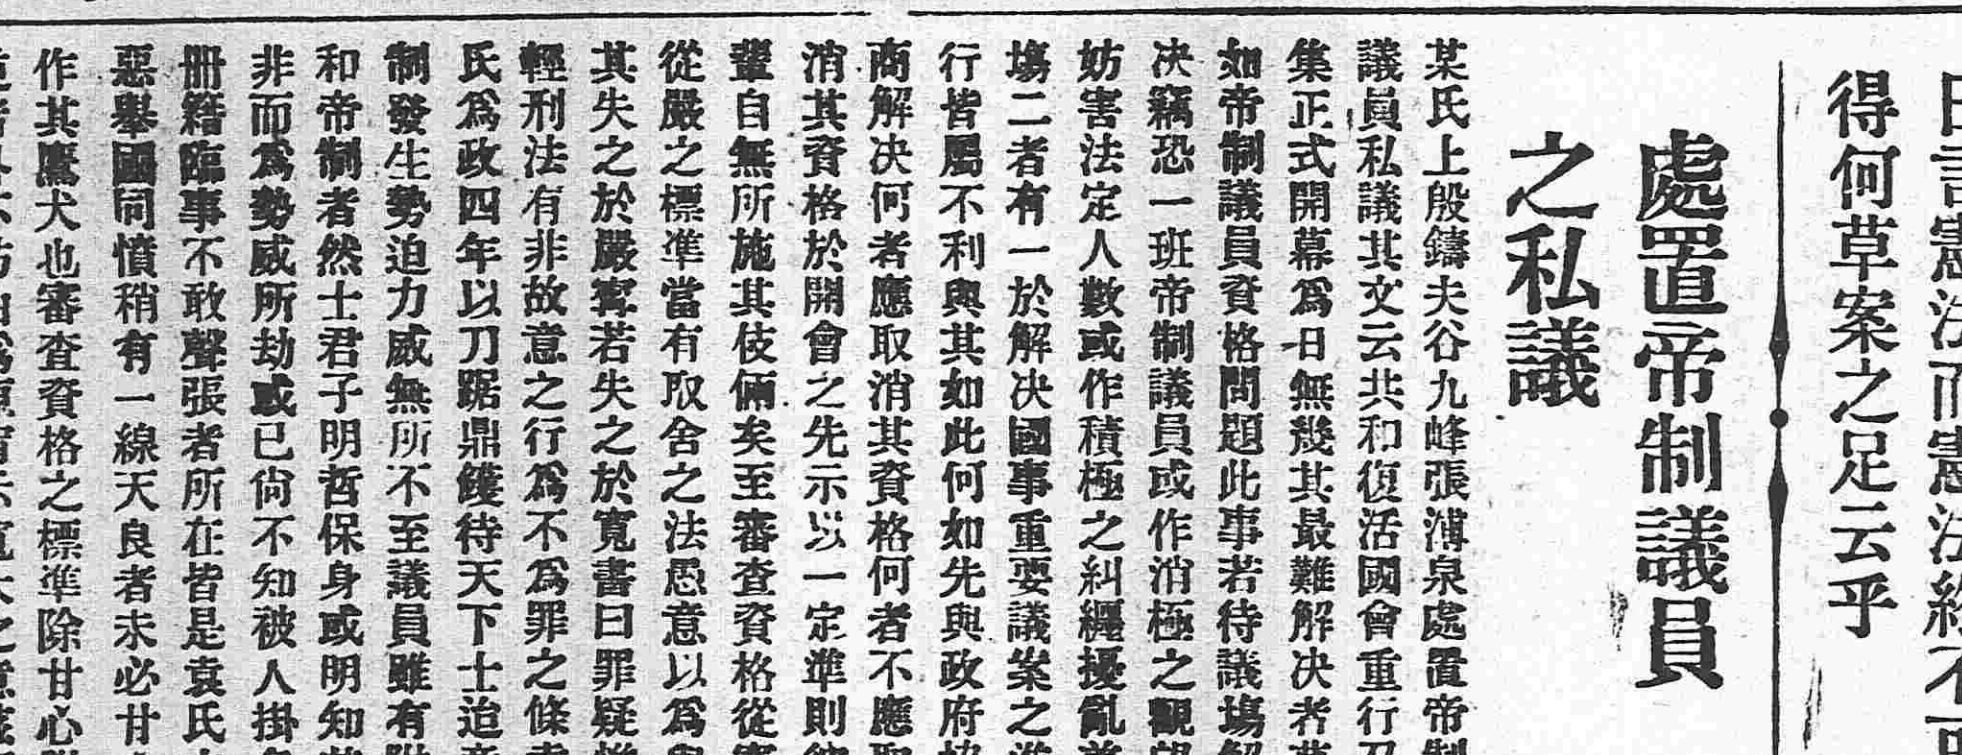 憲法而憲法終不可
得何草案之足云乎
處置帝制議員
之私議
某氏上殷鑄夫谷九峰張溥泉處置帝制
議員私議其文云共和復活國會重行召
集正式開幕爲日無幾其最難解决者莫
如帝制議員資格問題此事若待議場解
决竊恐一班帝制議員或作消極之觀望
妨害法定人數或作積極之糾纏擾亂議
塲二者有一於解决國事重要議案之進
行皆屬不利與其如此何如先與政府協
商解决何者應取消其資格何者不應取
消其資格於開會之先示以一定準則彼
輩自無所施其伎倆矣至審查資格從寬
從嚴之標準當有取舍之法愚意以爲與
其失之於嚴寗若失之於寬書曰罪疑惟
輕刑法有非故意之行爲不爲罪之條袁
氏爲政四年以刀踞鼎鑊待天下士迨帝
制發生勢迫力威無所不至議員雖有附
和帝制者然士君子明哲保身或明知其
非而爲勢威所劫或已尙不知被人掛名
册籍臨事不敢聲張者所在皆是袁氏
惡舉國同憤稍有一線天良者未必甘
作其鷹犬也審查資格之標準除甘心